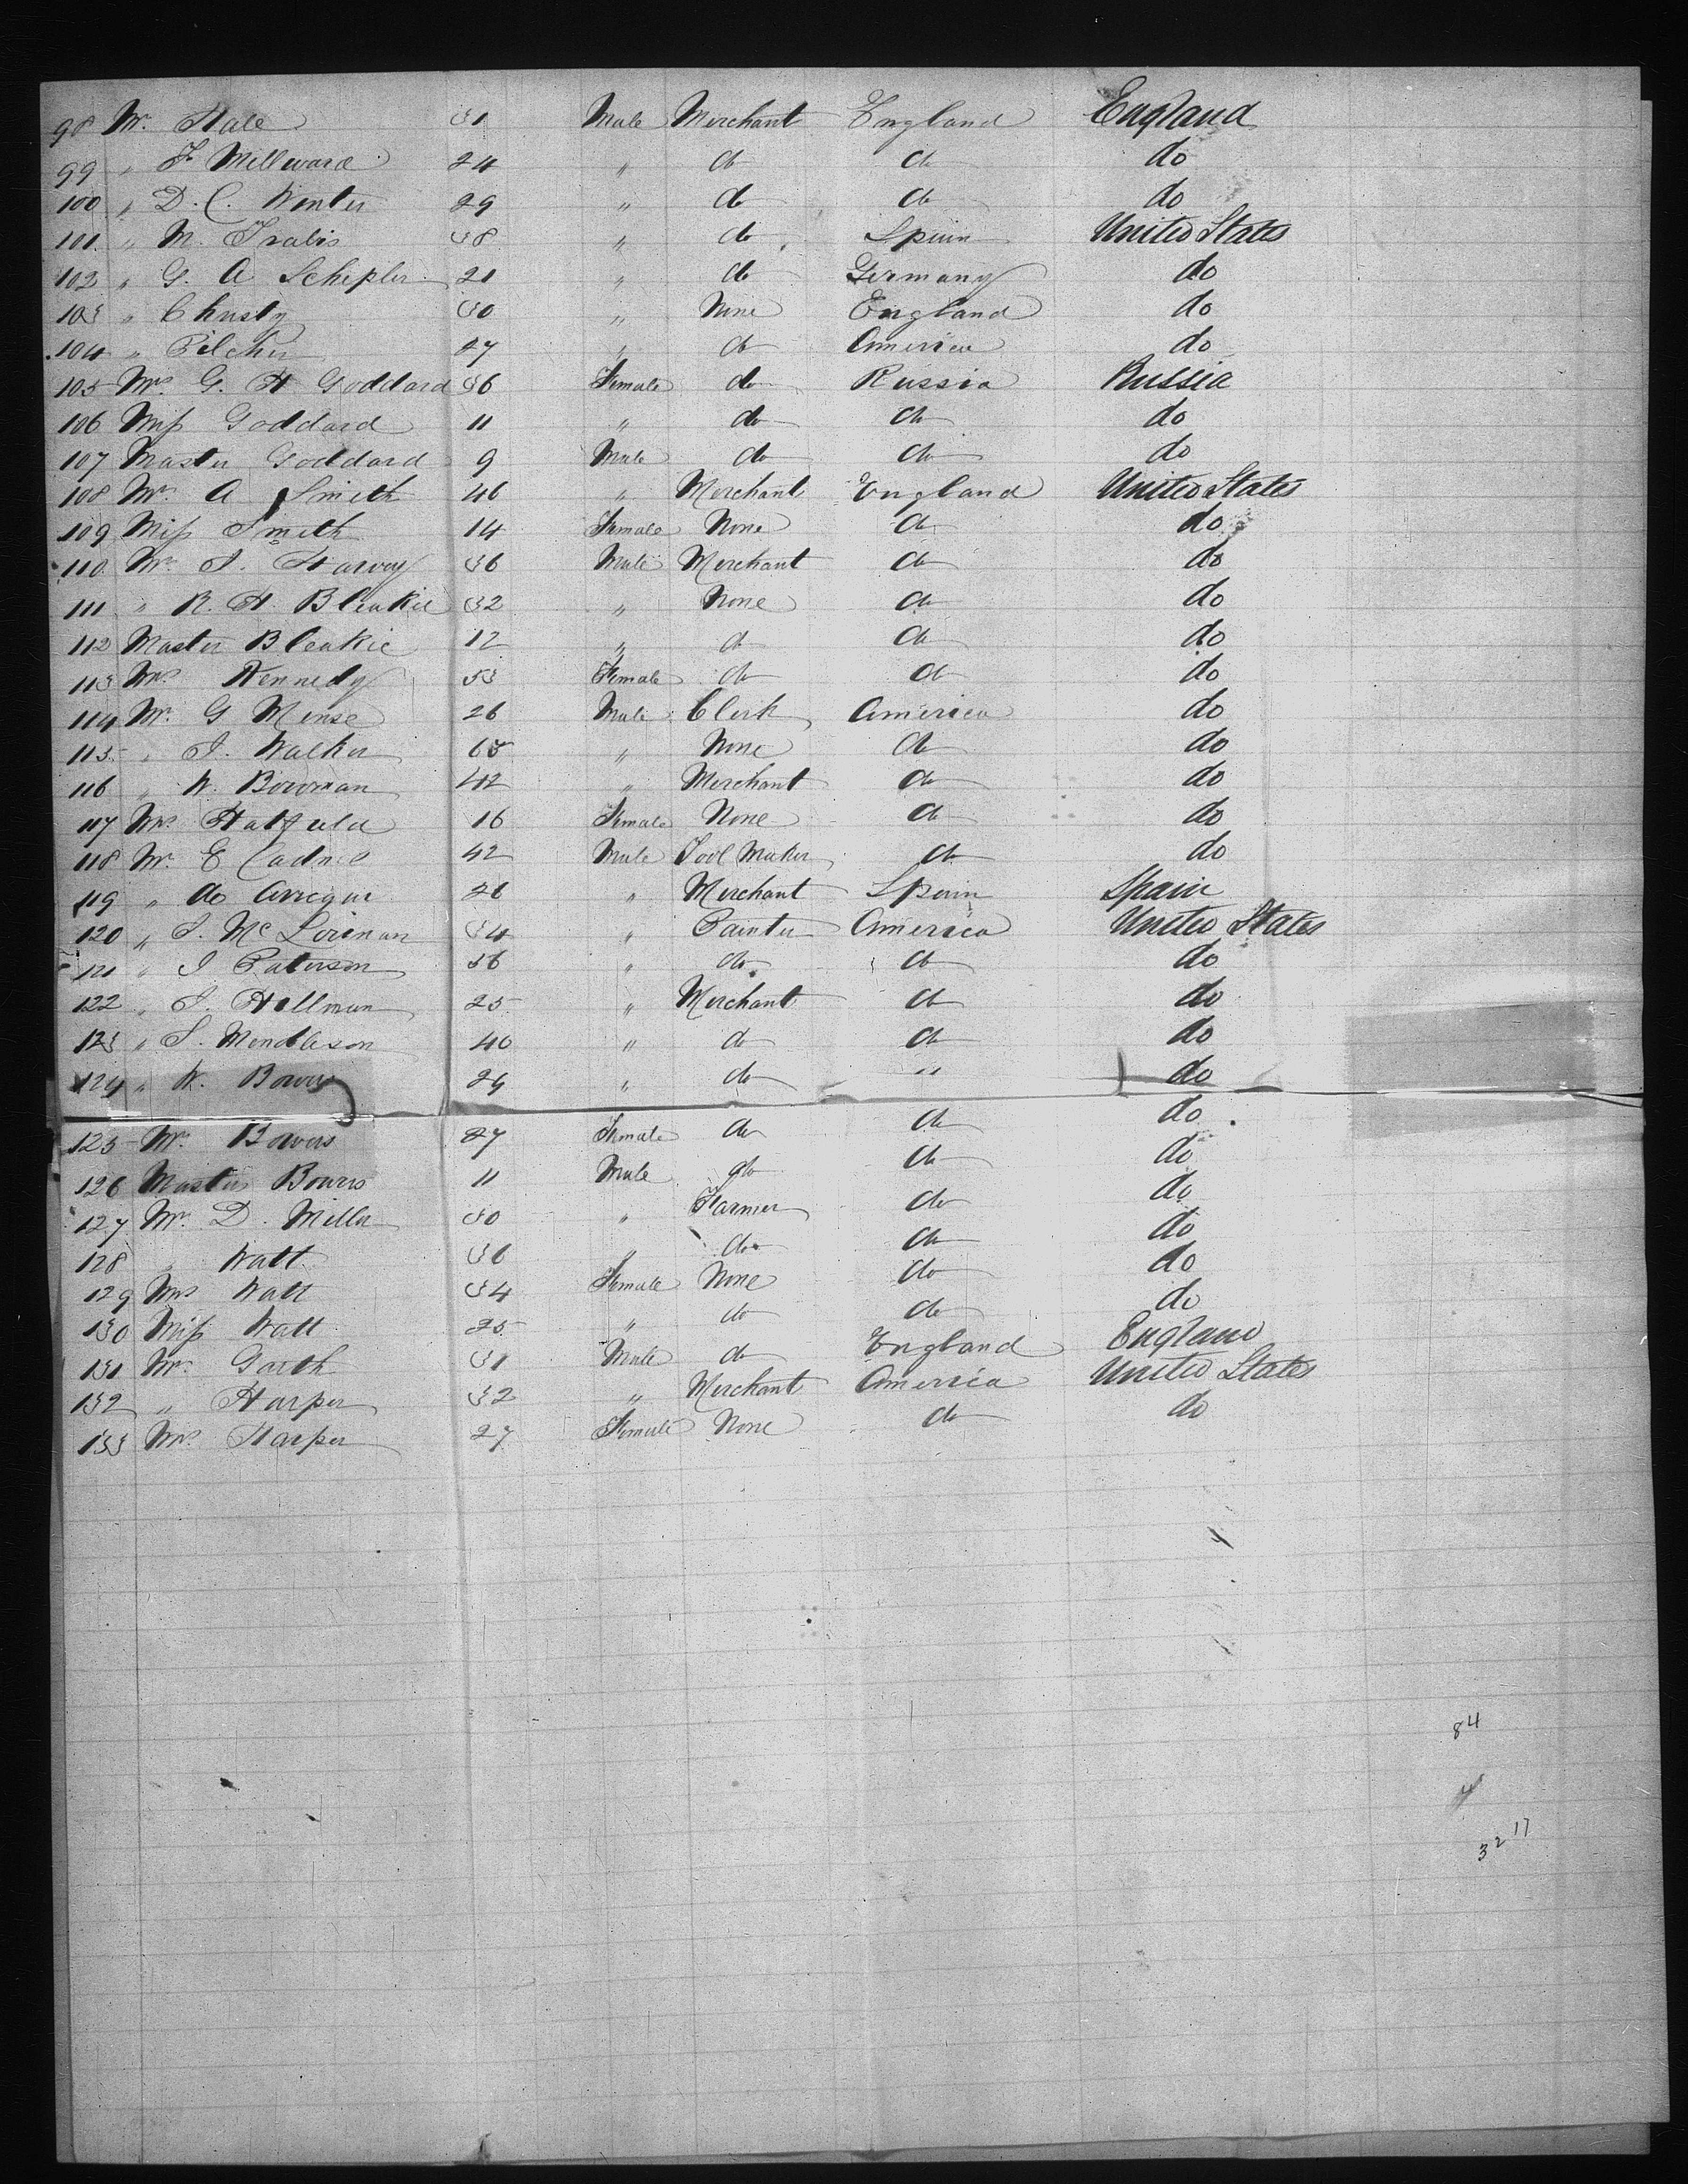 98 Mr. Hale 31 Male Merchant England England
99 " F. Millward 24 " do do do
100 " D. C. Winter 29 " do do do
101 " M. 38 " do Spain United States
102 " G. A Schepler 21 " do Germany do
103 " Christy 30 " None England do
104 " Pilcher 27 " do America do
105 Mrs. G. H Goddard 36 Female do Russia Russia
106 Miss Goddard 11 " do do do
107 Master Goddard 9 Male do do do
108 Mr. A Smith 46 " Merchant England United States
109 Miss Smith 14 Female None do do
110 Mr. J. Harvey 36 Male Merchant do do
111 " R. H. Bleakie 32 " None do do
112 Master Bleakie 12 " do do do
113 Mrs. Kennedy 53 Female do do do
114 Mr. G Mense 26 Male Clerk America do
115 " J. Walker 65 " None do do
116 " W. Bowman 42 " Merchant do do
117 Mrs. Hatfield 16 Female None do do
118 Mr. E 42 Male Tool Maker do do
119 " de 26 " Merchant Spain Spain
120 " J. Mc 34 " Painter America United States
121 " J Paterson 36 " do do do
122 " J. Hellman 25 " Merchant do do
123 " S. Mendleson 40 " do do do
124 " W. Bowers 29 " do " do
125 Mrs. Bowers 27 Female do do do
126 Master Bowers 11 Male do do do
127 Mr. D. Miller 30 " Farmer do do
128 " Watt 36 " do do do
129 Mrs Watt 34 Female None do do
130 Miss Watt 25 " do do do
131 Mr. Garth 31 Male do England England
132 " Harper 32 " Merchant America United States
133 Mrs. Harper 27 Female None do do
84
3217